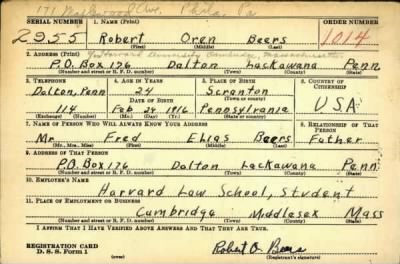 Phila. Pa
SERIAL NUMBER 1. NAME (Print) ORDER NUMBER
2955 Robert Oren Beers 1014
(First) (Middle) (Last)
2. ADDRESS (Print)
P.O. Box 176 Dalton Lackawana Penn
(Number and street or R. F. D. number) (Town) (County) (State)
3. TELEPHONE 4. AGE IN YEARS 5. PLACE OF BIRTH 6. COUNTRY OF CITIZENSHIP
Dalton, Penn 24 Scranton
DATE OF BIRTH (Town or county) USA
114 Feb 24 1916 Pennsylvania
(Exchange) (Number) (Mo.) (Day) (Yr.) (State or country)
7. NAME OF PERSON WHO WILL ALWAYS KNOW YOUR ADDRESS 8. RELATIONSHIP OF THAT PERSON
Mr. Fred Elias Beers Father
(Mr., Mrs., Miss) (First) (Middle) (Last)
9. ADDRESS OF THAT PERSON
P.O. Box 176 Dalton Lackawana Penn
(Number and street or R. F. D. number) (Town) (County) (State)
10. EMPLOYER'S NAME
Harvard Law School, Student
11. PLACE OF EMPLOYMENT OR BUSINESS
Cambridge Middlesex Mass
(Number and street or R. F. D. number) (Town) (County) (State)
I AFFIRM THAT I HAVE VERIFIED ABOVE ANSWERS AND THAT THEY ARE TRUE.
REGISTRATION CARD
D. S. S. Form 1 Robert O. Beers
(Registrant's signature)